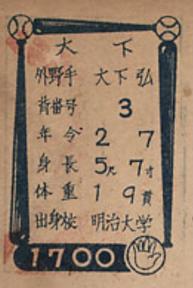 大下
外野手 大下 弘
背番号 3
年令 27
身長 5尺 7寸
体重 19貫
出身校 明治大学
1700